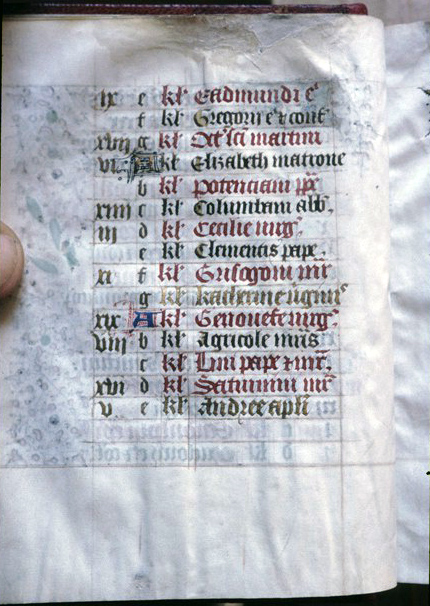 ix e kł Eadmundi eᵖ
f kł Gregorii eᵖ et conf
xvii g kł Oct' sci martini
vi A kł Elizabeth matrone
b kł Potenciani ppe
xiiii c kł Columbani abb'.
iii d kł Cecilie virg'.
e kł Clementis pape.
xi f kł Grisogoni mr'
g kł Katherine virginis
xix A kł Genouefe virg'.
viii b kł Agricole mris
c kł Lini pape et mr'.
xvi d kł Saturnini mr'
v e kł Andree apli